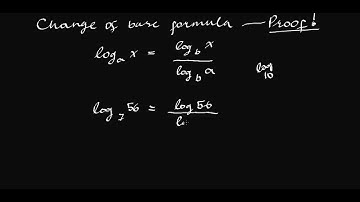 Change of base formula — Proof!
logₐ x = log_b x / log_b a
log₁₀
log₇ 56 = log 56 / lo